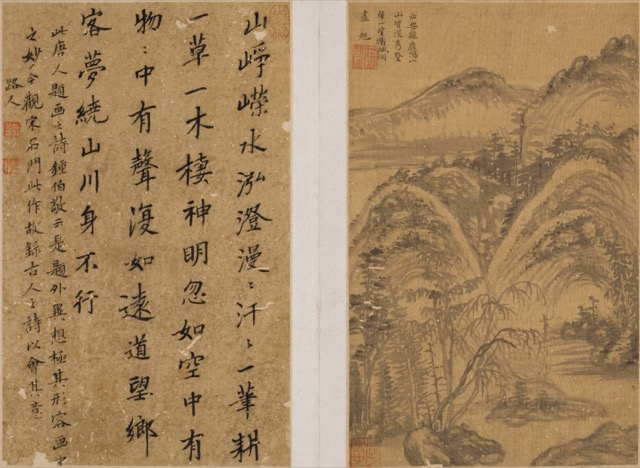 山崢嶸水泓澄漫〻汗〻一筆耕
一草一木棲神明忽如空中有
物〻中有聲復如遠道望鄉
客夢繞山川身不行
此唐人題画之詩鍾伯敬云是題外異想極其形容画中
之妙今觀宋石門此作故錄古人之詩以會其意
路人